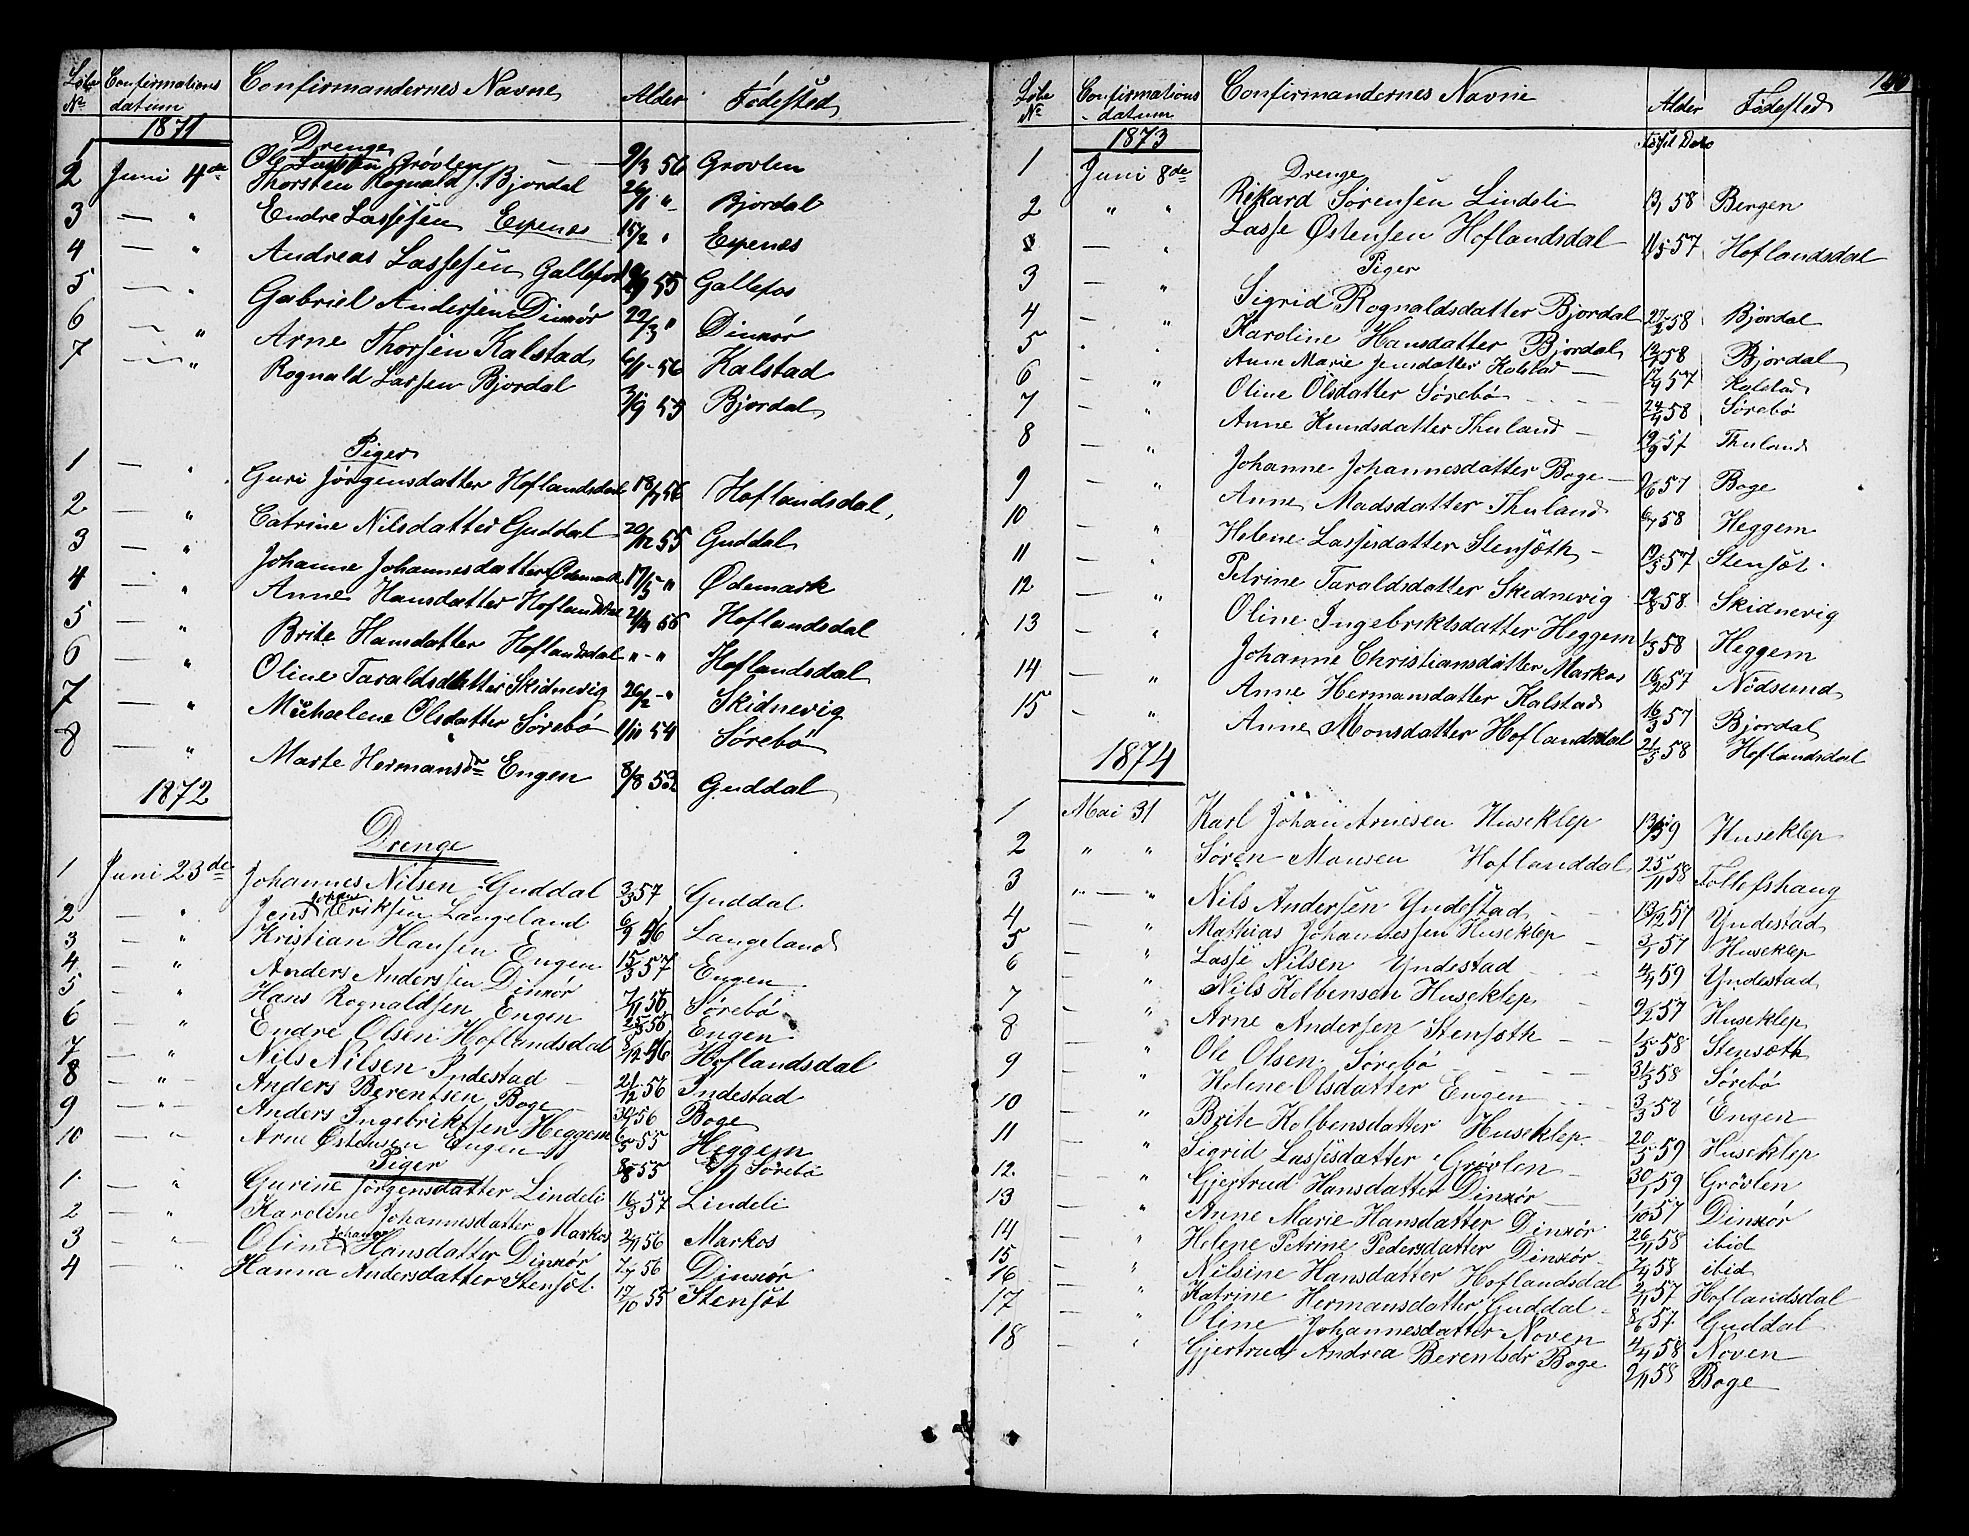 Löbe Confirmations Confirmandernes Navne Alder Födested
No datum
1871 Drenge
1 Ole Larsen Grövlen 9/3 56 Grovlen
2 Juni 4de Thorsten Rognalds. Bjordal 26/1 " Bjordal
3 — " Endre Lassesen Espenes 15/2 " Espenes
4 — " Andreas Lassesen Gallefos 55 Gallefos
5 — " Gabriel Andersen Dinxör 22/3 " Dinxör
6 — " Arne Thorsen Kalstad 6/1 - 56 Kalstad
7 — " Rognald Lassen Bjordal 3/9 55 Bjordal
Piger
1 — " Guri Jörgensdatter Hoflandsdal 18/7 56 Hoflandsdal
2 — " Catrine Nilsdatter Guddal 20/12 55 Guddal
3 — " Johanne Johannesdatter Ödemark 17/5 " Ödemark
4 — " Anne Hansdatter Hoflandsdal 2/4 56 Hoflandsdal
5 — " Brite Hansdatter Hoflandsdal " - " Hoflandsdal
6 — " Oline Taraldsdatter Skidnevig 26/2 - " Skidnevig
7 — " Michaelene Olsdatter Sørebö 1/11 54 Sørebö
8 — " Marte Hermansdr Engen 8/8 53 Guddal
1872
Drenge
1 Juni 23de Johannes Nilsen Guddal 3/3 57 Guddal
2 — " Jens Johan Eriksen Langeland 6/9 56 Langeland
3 — " Kristian Hansen Engen 15/3 57 Engen
4 — " Anders Anderssen Dinxör 7/11 56 Sørebö
5 — " Hans Rognaldsen Engen 25/5 56 Engen
6 — " Endre Olsen Hoflandsdal 8/12 56 Hoflandsdal
7 — " Nils Nilsen Indestad — 21/12 56 Indestad
8 — " — Anders Berentsen Boge — 56 Boge
9 — " — Anders Ingebriktsen Heggem 6/5 55 Heggem
10 — " — Arne Østensen Engen 55 Sörebö
Piger
1 — " Gurine Jörgensdatter Lindeli 16/3 57 Lindeli
2 — " Karoline Johannesdatter Markos 2/11 56 Markos
3 — " Oline Johanne Hansdatter Dinxör 7/7 56 Dinxör
4 — " Hanna Andersdatter Stensöt 12/10 55 Stensöt
Löbe Confirmations Confirmandernes Navne Alder Födested
No - datum
1873 Födsel Dato
1 Juni 8de Drenge
Rikard Sørensen Lindeli 13/1 58 Bergen
2 " " Lasse Østensen Hoflandsdal 11/5 57 Hoflandsdal
— " Piger
3 — " Sigrid Rognaldsdatter Bjordal 27/2 58 Bjordal
4 — " Karoline Hansdatter Bjordal 58 Bjordal
5 " " Anne Marie Jensdatter Kalstad — 17/9 57 Kalstad
6 — " Oline Olsdatter Sørebö 24/4 58 Sörebö
7 — " Anne Knudsdatter Thuland — 19/9 57 Thuland
8 — " Johanne Johannesdatter Boge — 9/6 57 Boge
9 — " Anne Madsdatter Thuland 6/7 58 Heggem
10 — " Helene Lassesdatter Stensöth — 19/5 57 Stensöt
11 — " Petrine Taraldsdatter Skidnevig 19/8 58 Skidnevig
12 — " Oline Ingebriktsdatter Heggem 1/5 58 Heggem
13 — " Johanne Christiansdatter Markos 16/2 57 Nödsund
14 — " Anne Hermansdatter Kalstad 16/3 57 Bjordal
15 — " Anne Monsdatter Hoflandsdal 21/5 58 Hoflandsdal
1874
1 Mai 31 Karl Johan Arnesen Huseklep 59 Huseklep
2 " " Sören Monsen Hoflanddal 25/11 58 Tollefshaug
3 " — " Nils Andersen Yndestad 13/12 57 Yndestad
4 — " Mathias Johannessen Huseklep 3/7 57 Huseklep
5 — " Lasse Nilsen Yndestad 4/4 59 Yndestad
6 — " Nils Kolbensen Huseklep — 9/2 57 Huseklep
7 — Arne Andersen Stensöth — 1/5 58 Stensöth
8 — " Ole Olsen Sørebö 31/3 58 Sørebö
9 — " Helene Olsdatter Engen 3/3 58 Engen
10 — " Brite Kolbensdatter Huseklep 20/5 59 Huseklep
11 — " Sigrid Lassesdatter Grövlen — 30/1 59 Grövlen
12 — " Gjertrud Hansdatter Dinxör — 1/10 57 Dinxör
13 — " Anne Marie Hansdatter Dinxör 26/11 58 ibid
14 — " Helene Petrine Pedersdatter Dinxör 7/4 58 ibid
15 — " Nilsine Hansdatter Hoflandsdal 2/11 57 Hoflandsdal
16 — " Katrine Hermansdatter Guddal 8/6 57 Guddal
17 — " Oline Johannesdatter Noven 4/4 58 Noven
18 — " Gjertrud Andrea Berentsdr Boge 2/11 58 Boge